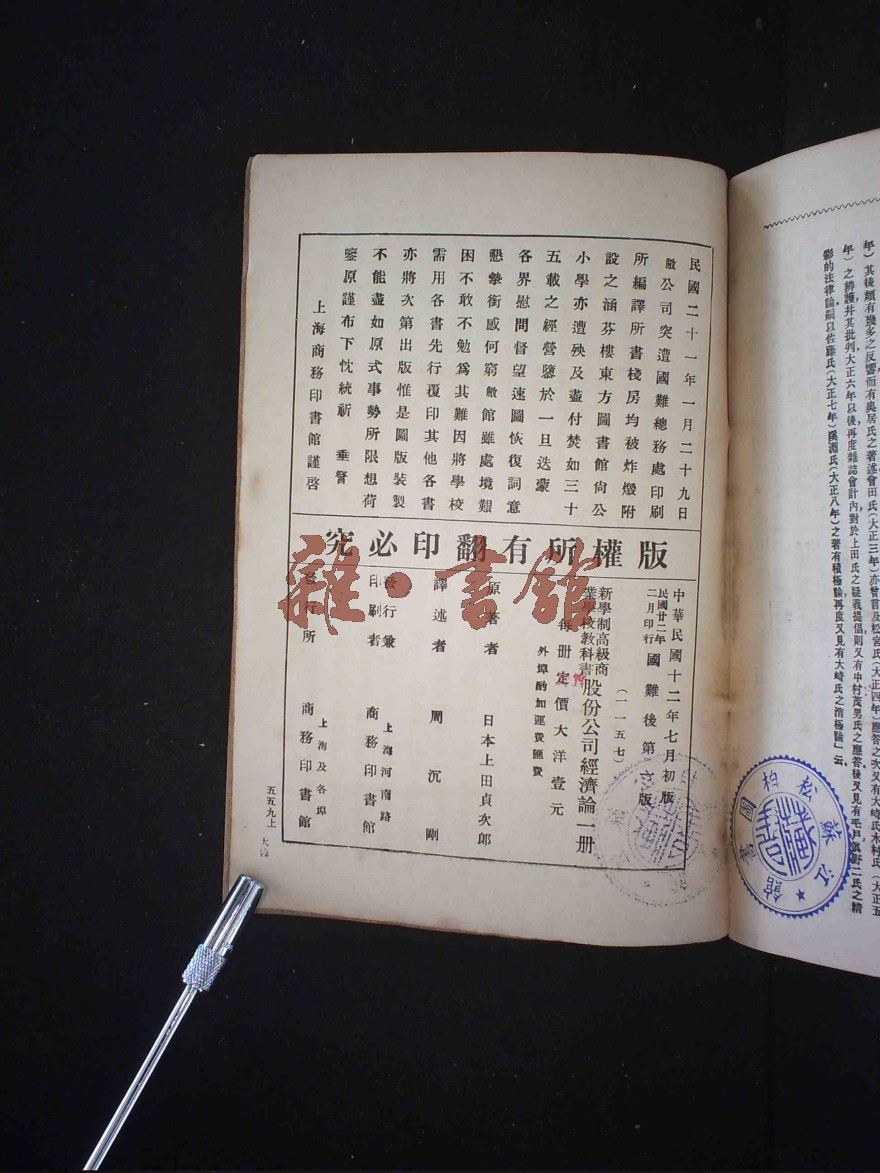 年）其後頗有幾多之反響而有奧居氏之著述會田氏（大正三年）亦曾言及松宮氏（大正四年）應答之次又有大崎氏木村氏（大正五
年）之辨護并其批判大正六年以後再度雜誌會計內對於上田氏之疑義提倡則又有中村茂男氏之應答後又見有毛戶眞野二氏之精
彩的法律論嗣以佐藤氏（大正七年）溪淵氏（大正八年）之著有積極論再度又見有大崎氏之消極論」云
江蘇松柏圖書館
民國二十一年一月二十九日
敝公司突遭國難總務處印刷
所編譯所書棧房均被炸燬附
設之涵芬樓東方圖書館尙公
小學亦遭殃及盡付焚如三十
五載之經營隳於一旦迭蒙
各界慰問督望速圖恢復詞意
懇摯銜感何窮敝館雖處境艱
困不敢不勉爲其難因將學校
需用各書先行覆印其他各書
亦將次第出版惟是圖版裝製
不能盡如原式事勢所限想荷
鑒原謹布下忱統祈　垂詧
上海商務印書館謹啓
版權所有翻印必究
中華民國十二年七月初版
民國廿二年二月印行 國難後第 版
（一一五七）
新學制高級商業學校教科書 股份公司經濟論一册
每册定價大洋壹元
外埠酌加運費匯費
原著者　日本上田貞次郎
譯述者　周沉剛
發行兼印刷者　上海河南路 商務印書館
發行所　上海及各埠 商務印書館
五五九上
雜·書館